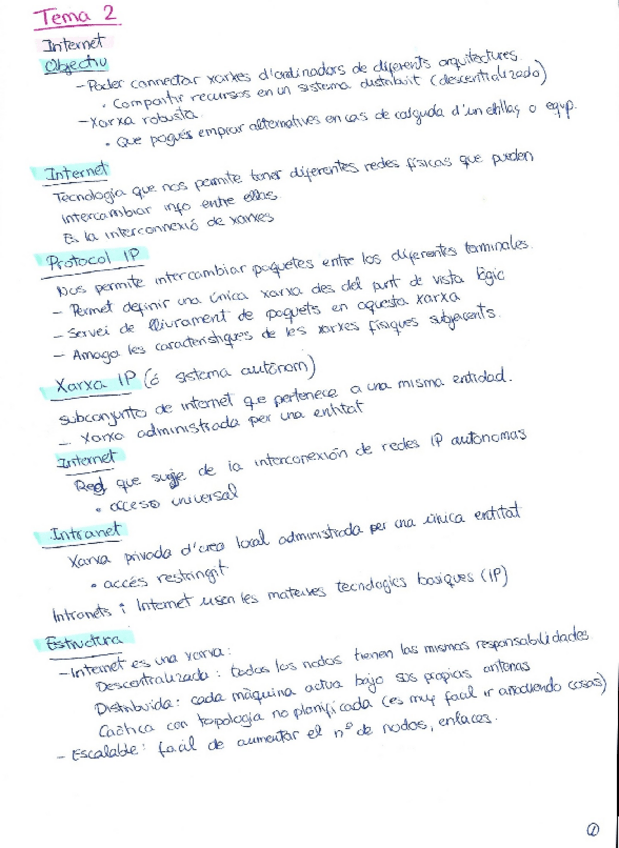 Tema 2
Internet
Objectiu
- Poder connectar xarxes d'ordinadors de diferents arquitectures.
• Compartir recursos en un sistema distribuit (descentralizado)
- Xarxa robusta.
• Que pogués emprar alternatives en cas de caiguda d'un enllaç o equip.
Internet
Tecnología que nos permite tener diferentes redes físicas que pueden
intercambiar info entre ellas.
Es la interconnexió de xarxes
Protocol IP
Nos permite intercambiar paquetes entre los diferentes terminales.
- Permet definir una única xarxa des del punt de vista lògic
- Servei de lliurament de paquets en aquesta xarxa
- Amaga les característiques de les xarxes físiques subjacents.
Xarxa IP (ó sistema autònom)
subconjunto de internet que pertenece a una misma entidad.
- Xarxa administrada per una entitat
Internet
Red que surge de la interconexión de redes IP autónomas
• acceso universal
Intranet
Xarxa privada d'àrea local administrada per una única entitat
• accés restringit
Intranets i Internet usen les mateixes tecnologies bàsiques (IP)
Estructura
- Internet es una xarxa:
Descentralizada: todos los nodos tienen las mismas responsabilidades
Distribuida: cada màquina actua bajo sus propias
Caótica con topología no planificada (es muy facil ir añadiendo cosas)
- Escalable: facil de aumentar el nº de nodos, enlaces.
1